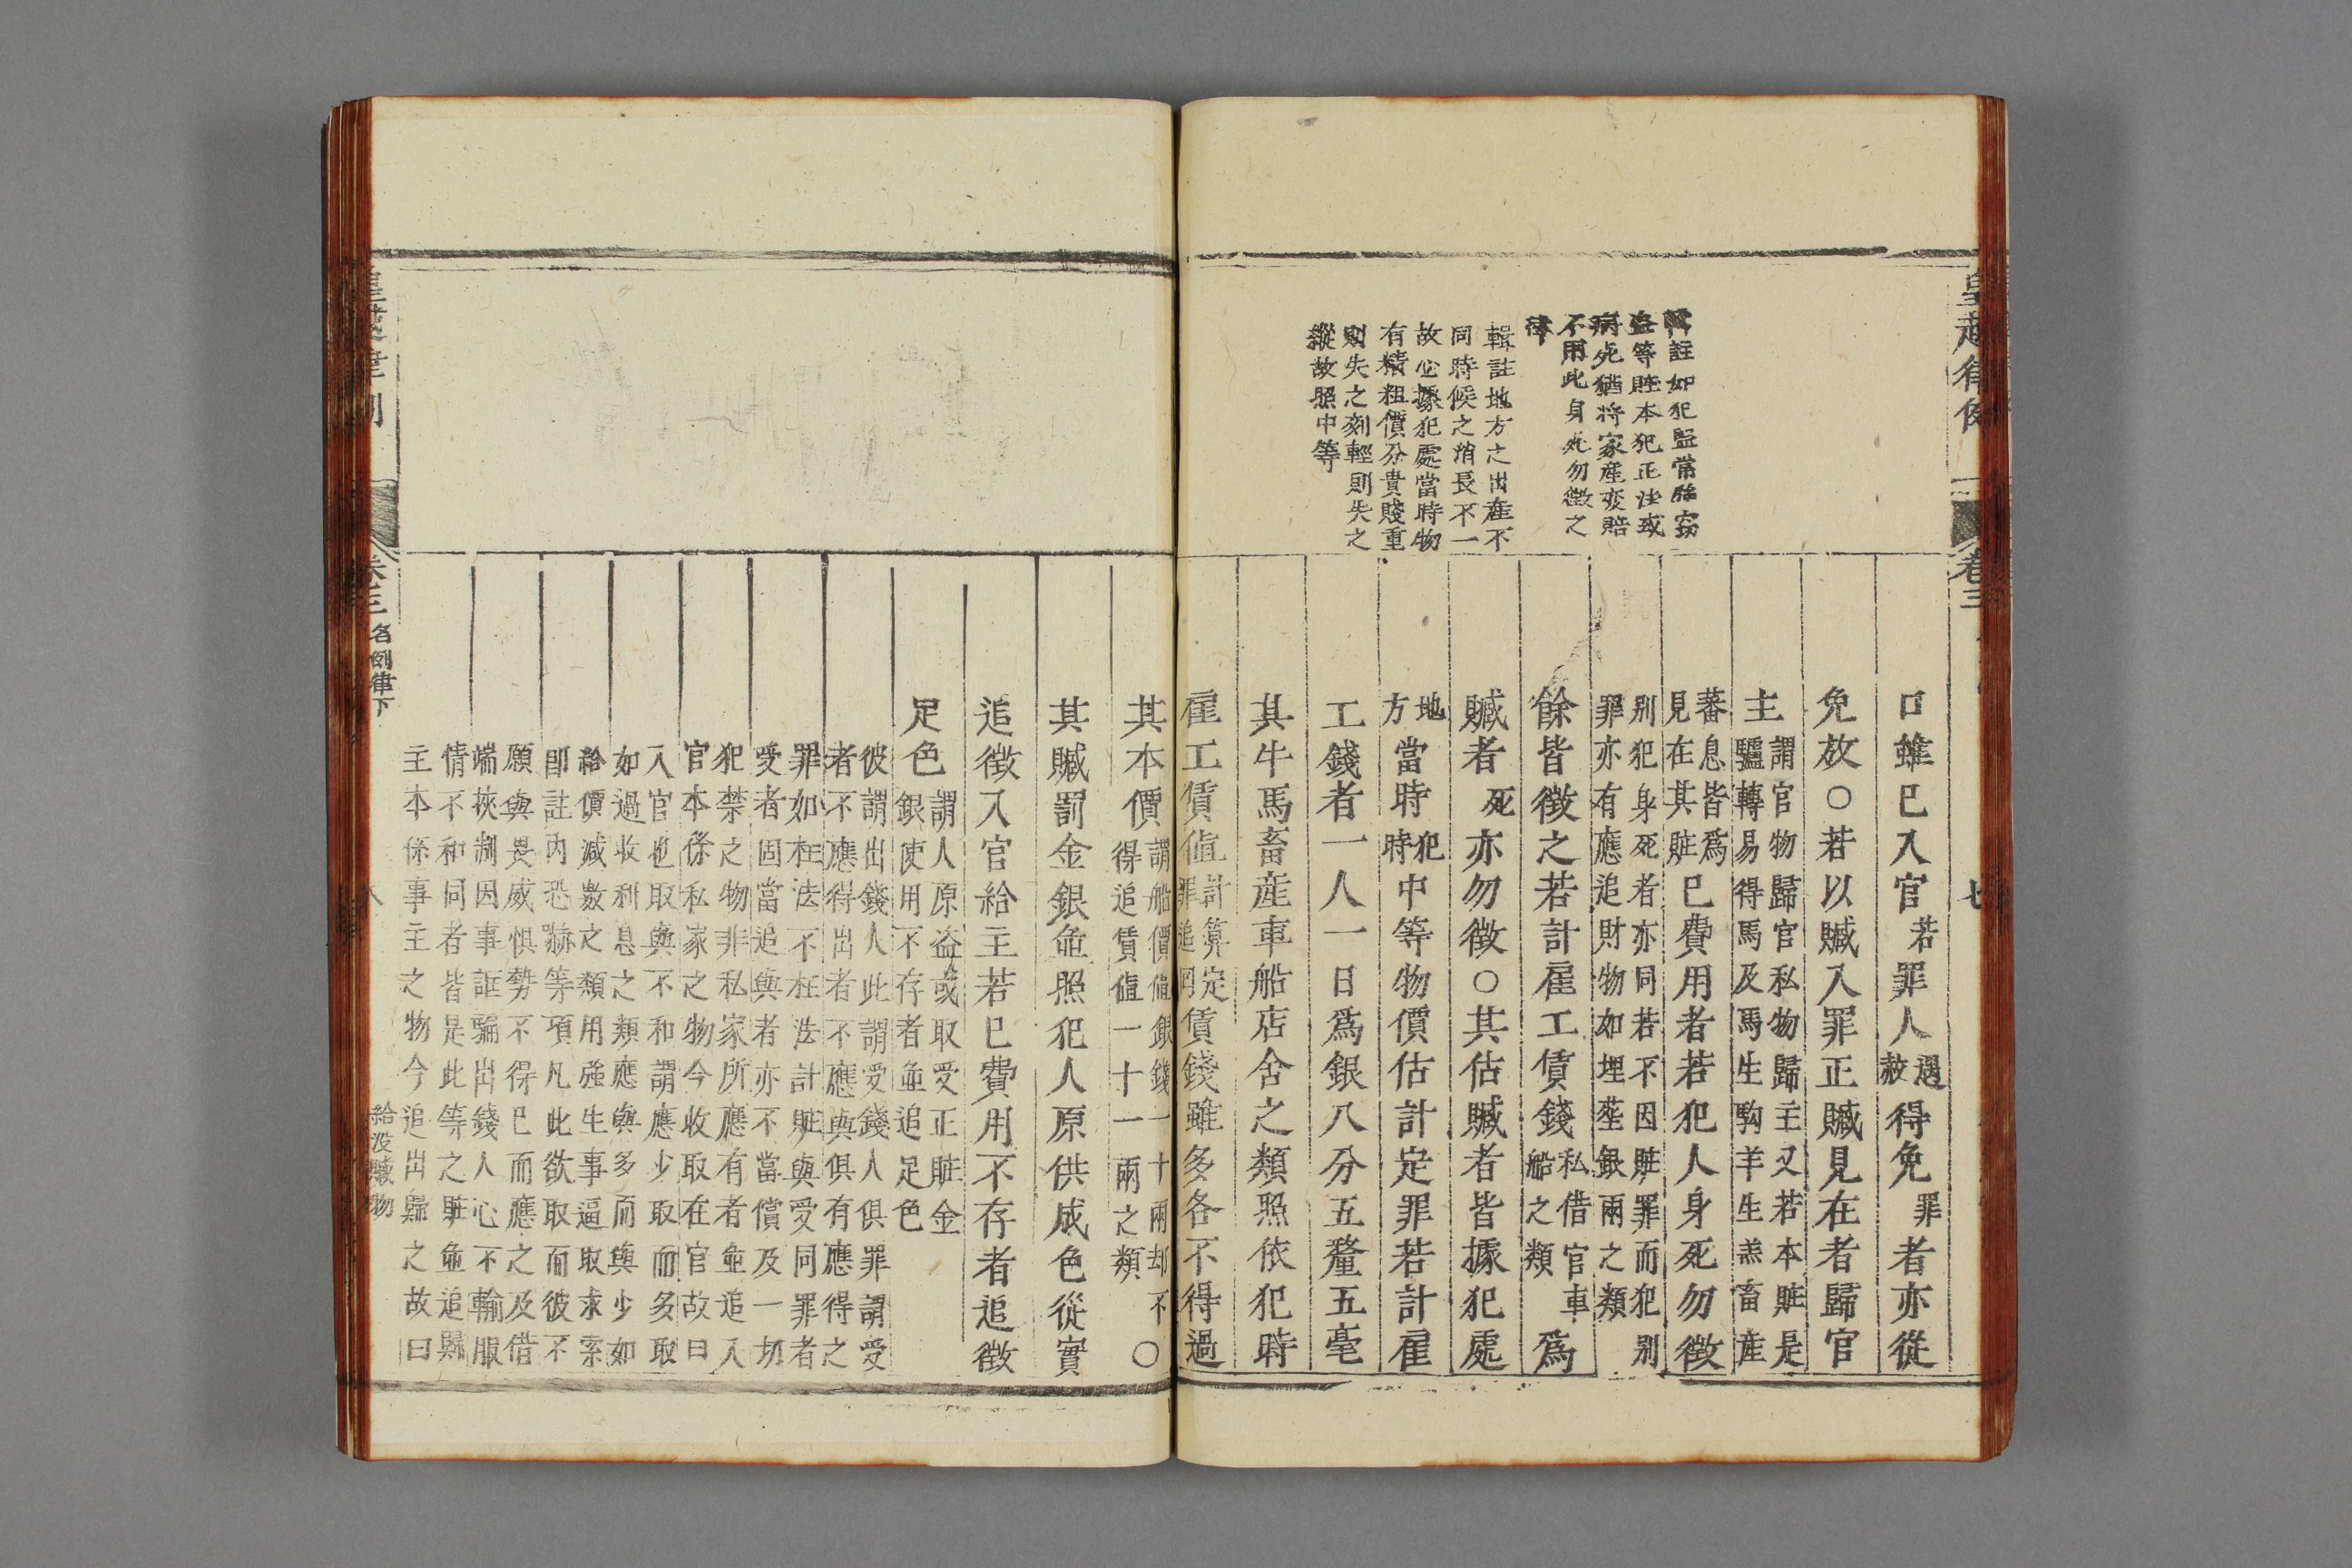 皇越律例
卷三
七
註如犯監常窃
盗等賍本犯正法或
病死猶将家産変賠
不用此身死勿徴之
律
輯註地方之出産不
同時候之消長不一
故必據犯處當時物
有精粗價分貴賤重
則失之刻輕則失之
縱故照中等
口雖已入官若罪人遇赦得免罪者亦從
免放○若以贓入罪正贓見在者歸官
主謂官物歸官私物歸主又若本賍是
驢轉易得馬及馬生駒羊生羔畜産
蕃息皆爲見在其賍已費用者若犯人身死勿徴
别犯身死者亦同若不因賍罪而犯别
罪亦有應追財物如埋塟銀兩之類
餘皆徴之若計雇工賃錢私借官車船之類爲
贓者死亦勿徴○其估贓者皆據犯處
地方當時犯時中等物價估計定罪若計雇
工錢者一人一日爲銀八分五釐五毫
其牛馬畜産車船店舍之類照依犯時
雇工賃値計算定罪追固賃錢雖多各不得過
其本價謂船價値銀錢一十兩却不得追賃値一十一兩之類○
其贓罰金銀並照犯人原供成色從實
追徴入官給主若已費用不存者追徴
足色謂人原盗或取受正賍金
銀使用不存者並追足色
彼謂出錢人此謂受錢人俱罪謂受
者不應得出者不應與俱有應得之
罪如枉法不枉法計賍與受同罪者
受者固當追與者亦不當償及一切
犯禁之物非私家所應有者並追入
官本係私家之物今收取在官故曰
入官也取與不和謂應少取而多取
如過收利息之類應與多而與少如
給價减數之類用强生事逼取求索
即註内恐嚇等項凡此欲取而彼不
願與畏威惧勢不得已而應之及借
端挾制因事誆騙出錢人心不輸服
情不和同者皆是此等之賍並追歸
主本係事主之物今追出歸之故曰
皇越律例
卷三
名例律下
八
給没贓物